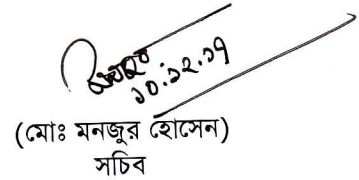 ১০.১২.১৭
(মোঃ মনজুর হোসেন)
সচিব